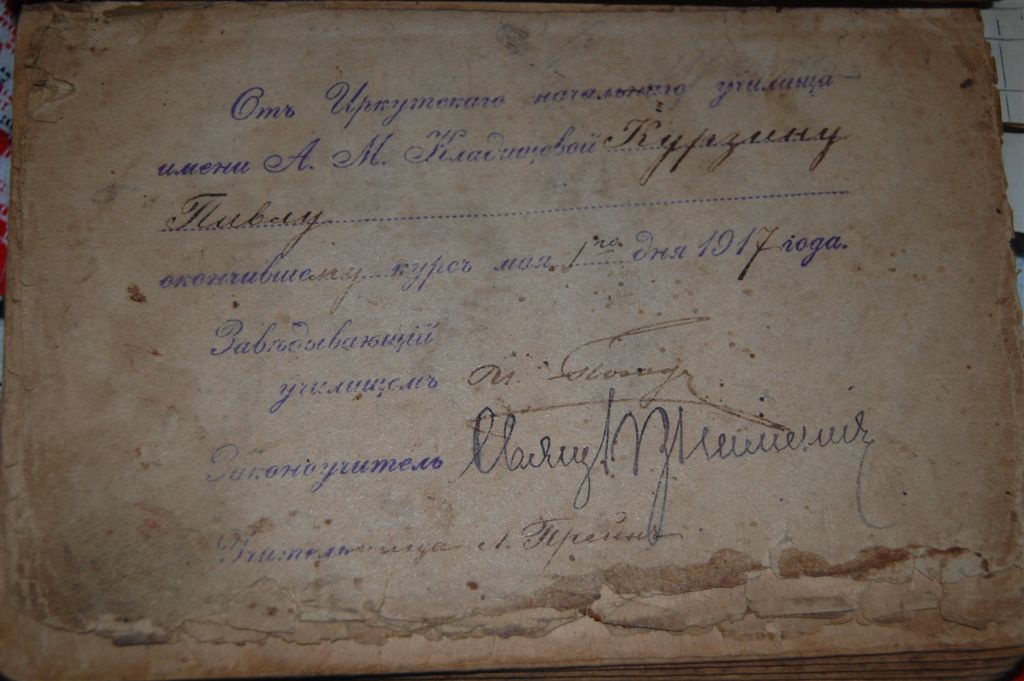 Отъ Иркутскаго начальнаго училища
имени А. М. Кладищевой Курзину
Павлу
окончившему курсъ мая 1го дня 1917 года.
Завѣдывающій
училищемъ М.
Законоучитель Свящ.
Учительница Л. Прейнъ